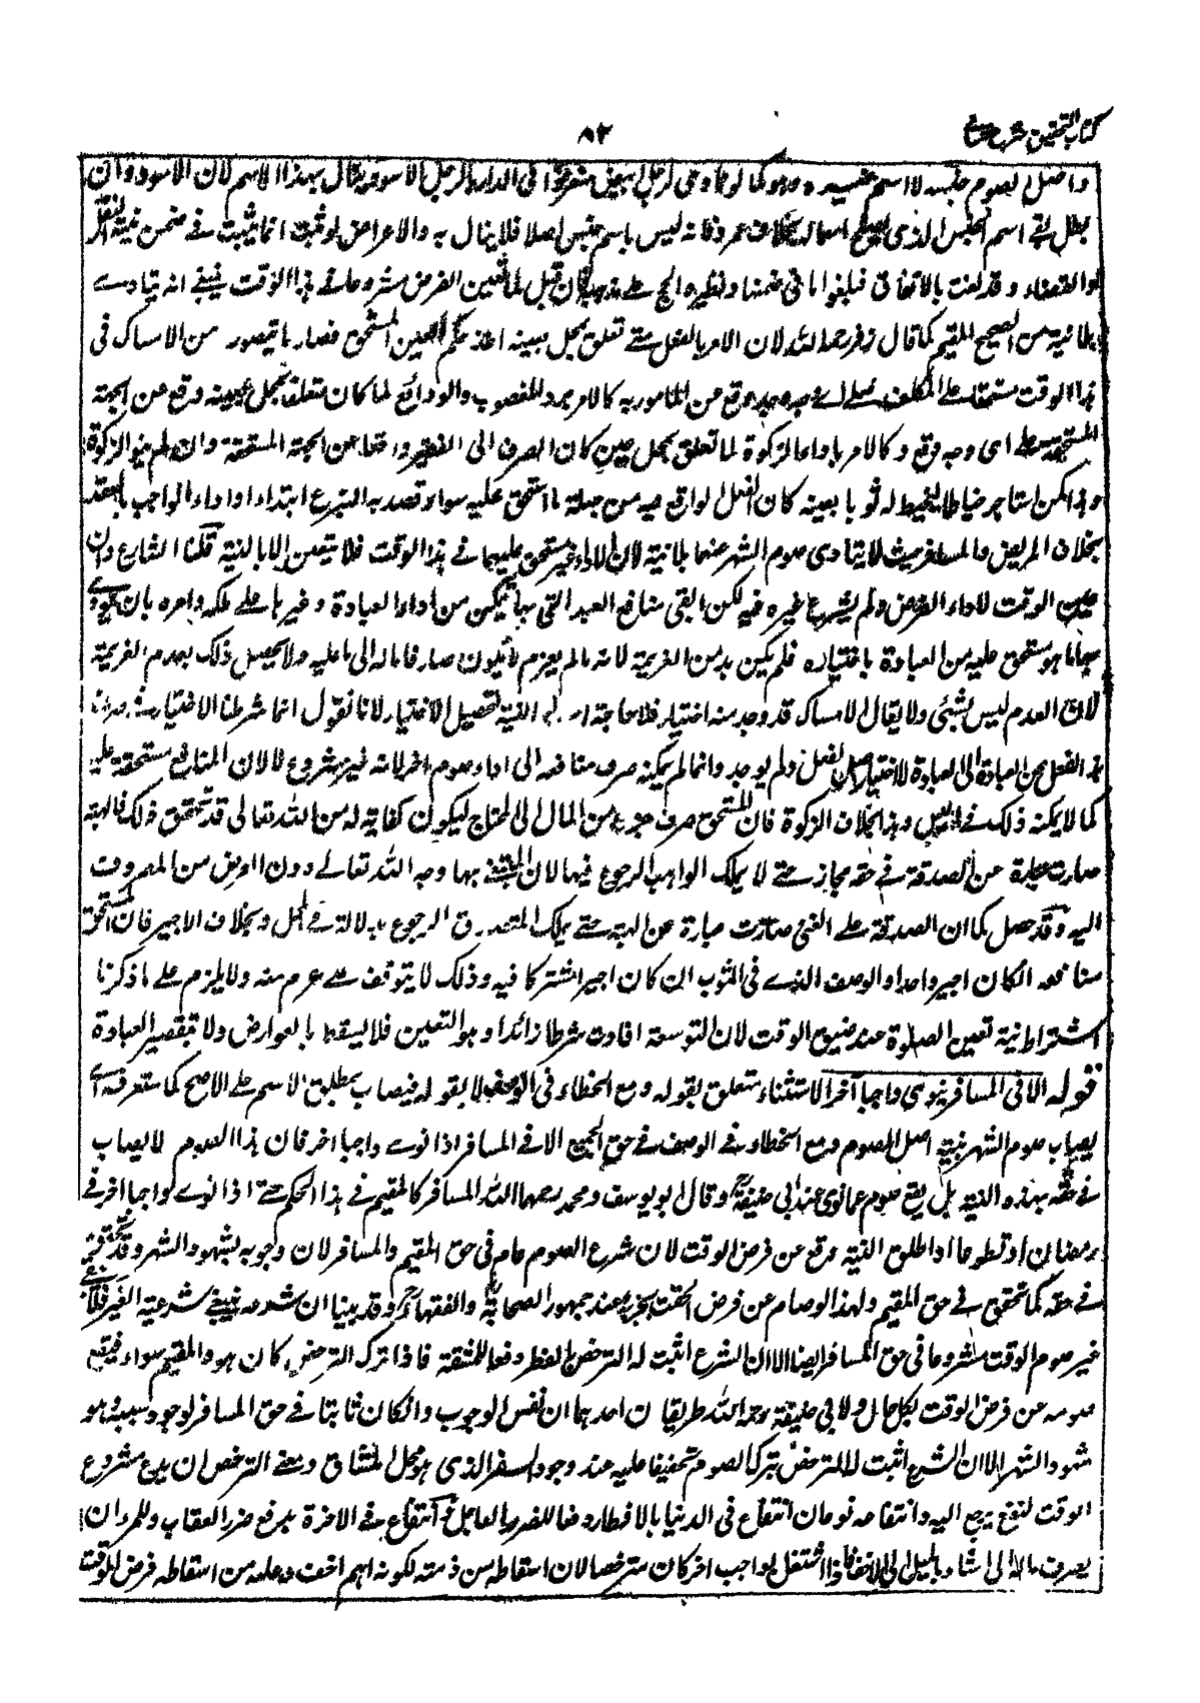 كتاب التحقيق شرح حسامي
٨٢
واصل الصوم جنسه لا اسم جنسه وهو كما لو نادى لرجل ابيض منفرد افى الدار يا رجل الاسود ينال بهذا الاسم لان الاسود وان
بطل بقى اسم الجنس الذى يصلح اسما له بخلاف عمرو فانه ليس باسم جنس اصلا فلا ينال به والاعراض لو ثبت انما يثبت فى ضمن نية النفل
او القضاء وقد لغت بالاتفاق فيلغوا ما فى ضمنها ونظيره الحج على مذهبه فان قيل لما تعين الفرض مشروعا فى هذا الوقت ينبغى انه يتادى
بلا نية من الصحيح المقيم كما قال زفر رحمه الله لان الامر بالفعل متى تعلق بمحل بعينه اخذ حكم العين المستحق فصار ما يتصور من الامساك فى
هذا الوقت مستحقا على المكلف فعلى اى وجه وجد وقع من المامور به كالامر برد المغصوب والودائع لما كان متعلقا بمحل بعينه وقع عن الجهة
المستحقة على اى وجه وقع وكالامر باداء الزكوة لما تعلق بمحل عين كان الصرف الى الفقير واقعا عن الجهة المستحقة وان لم ينو الزكوة
وهذا كمن استاجر خياطا ليخيط له ثوبا بعينه كان الفعل الواقع فيه من جهة ما استحق عليه سواء قصد به التبرع ابتداء او اداء الواجب بالعقد
بخلاف المريض والمسافر حيث لا يتادى صوم الشهر عنهما بلا نية لان الاداء غير مستحق عليهما فى هذا الوقت فلا يتعين الا بالنية قلنا الشارع وان
عين الوقت لاداء الفرض ولم يشرع غيره فيه لكن ابقى منافع العبد التى بها يتمكن من اداء العبادة وغيرها على ملكه وامره بان يودى
بها ما هو مستحق عليه من العبادة باختياره فلم يكن بد من العزيمة لانه ما لم يعزم لا يكون صارفا ماله الى ما عليه ولا يحصل ذلك بعدم العزيمة
لان العدم ليس بشئى ولا يقال الامساك قد وجد منه اختيار فلا حاجة الى النية لتحصيل الاختيار لانا نقول انما شرطنا الاختيار فى صرف
هذا الفعل من العادة الى العبادة لا اختيار اصل الفعل ولم يوجد وانما لم يمكنه صرف منافعه الى اداء صوم اخر لانه غير مشروع لا لان المنافع مستحقة عليه
كما لا يمكنه ذلك فى الليل وهذا بخلاف الزكوة فان المستحق صرف جزء من المال الى المحتاج ليكون كفاية له من الله تعالى قد تحقق ذلك فالهبة
صارت عبارة عن الصدقة فى حقه مجازا حتى لا يملك الواهب الرجوع فيها لان المبتغى بها وجه الله تعالى دون العوض من المصروف
اليه وقد حصل كما ان الصدقة على الغنى صارت عبارة عن الهبة حتى يملك المتصدق الرجوع بدلالة فى المحل وبخلاف الاجير فان المستحق
منافعه ان كان اجير واحد او الوصف الذى فى الثوب ان كان اجيرا مشتركا فيه وذلك لا يتوقف على عزم منه ولا يلزم على ما ذكرنا
اشتراط نية تعيين الصلوة عند ضيق الوقت لان التوسعة افادت شرطا زائدا وهو التعيين فلا يسقط بالعوارض ولا بتقصير العبادة
قوله الا فى المسافر ينوى واجبا آخر الاستثناء متعلق بقوله ومع الخطاء فى الوصف لا بقوله فيصاب بمطلق الاسم على الاصح كما ستعرفه اى
يصاب صوم الشهر بنية اصل الصوم ومع الخطاء فى الوصف فى حق الجميع الا فى المسافر اذا نوى واجبا اخر فان هذا الصوم لا يصاب
فى حقه بهذه النية بل يقع صوم عما نوى عند ابى حنيفة وقال ابو يوسف ومحمد رحمهما الله المسافر كالمقيم فى هذا الحكم حتى اذا نوى واجبا اخر فى
رمضان او تطوعا او اطلق النية وقع عن فرض الوقت لان شرع الصوم عام فى حق المقيم والمسافر لان وجوبه بشهود الشهر وقد تحقق
فى حقه كما تحقق فى حق المقيم ولهذا لو صام عن فرض الوقت يجزيه عند جمهور الصحابة والفقهاء وقد بينا ان شرعه ينفى شرعية الغير فلا يبقى
غير صوم الوقت مشروعا فى حق المسافر ايضا الا ان الشرع اثبت له الترخص بالفطر دفعا للمشقة فاذا ترك الترخص كان هو والمقيم سواء فيقع
صومه عن فرض الوقت بكل حال ولابى حنيفة رحمه الله طريقان احدهما ان نفس الوجوب وان كان ثابتا فى حق المسافر لوجود سببه وهو
شهود الشهر الا ان الشرع اثبت له الترخص بترك الصوم تخفيفا عليه عند وجود السفر الذى هو محل المشاق ومعنى الترخص ان يدع مشروع
الوقت لنفع يرجع اليه وانتفاعه نوعان انتفاع فى الدنيا بالافطار دفعا للضرر العاجل وانتفاع فى الاخرة برفع ضرر العقاب وللمرء ان
يصرف ماله الى اشاء بالميل الى الاخف فاذا اشتغل بواجب اخر كان مترخصا لان اسقاطه من ذمته لكونه اهم اخف عليه من اسقاطه فرض الوقت